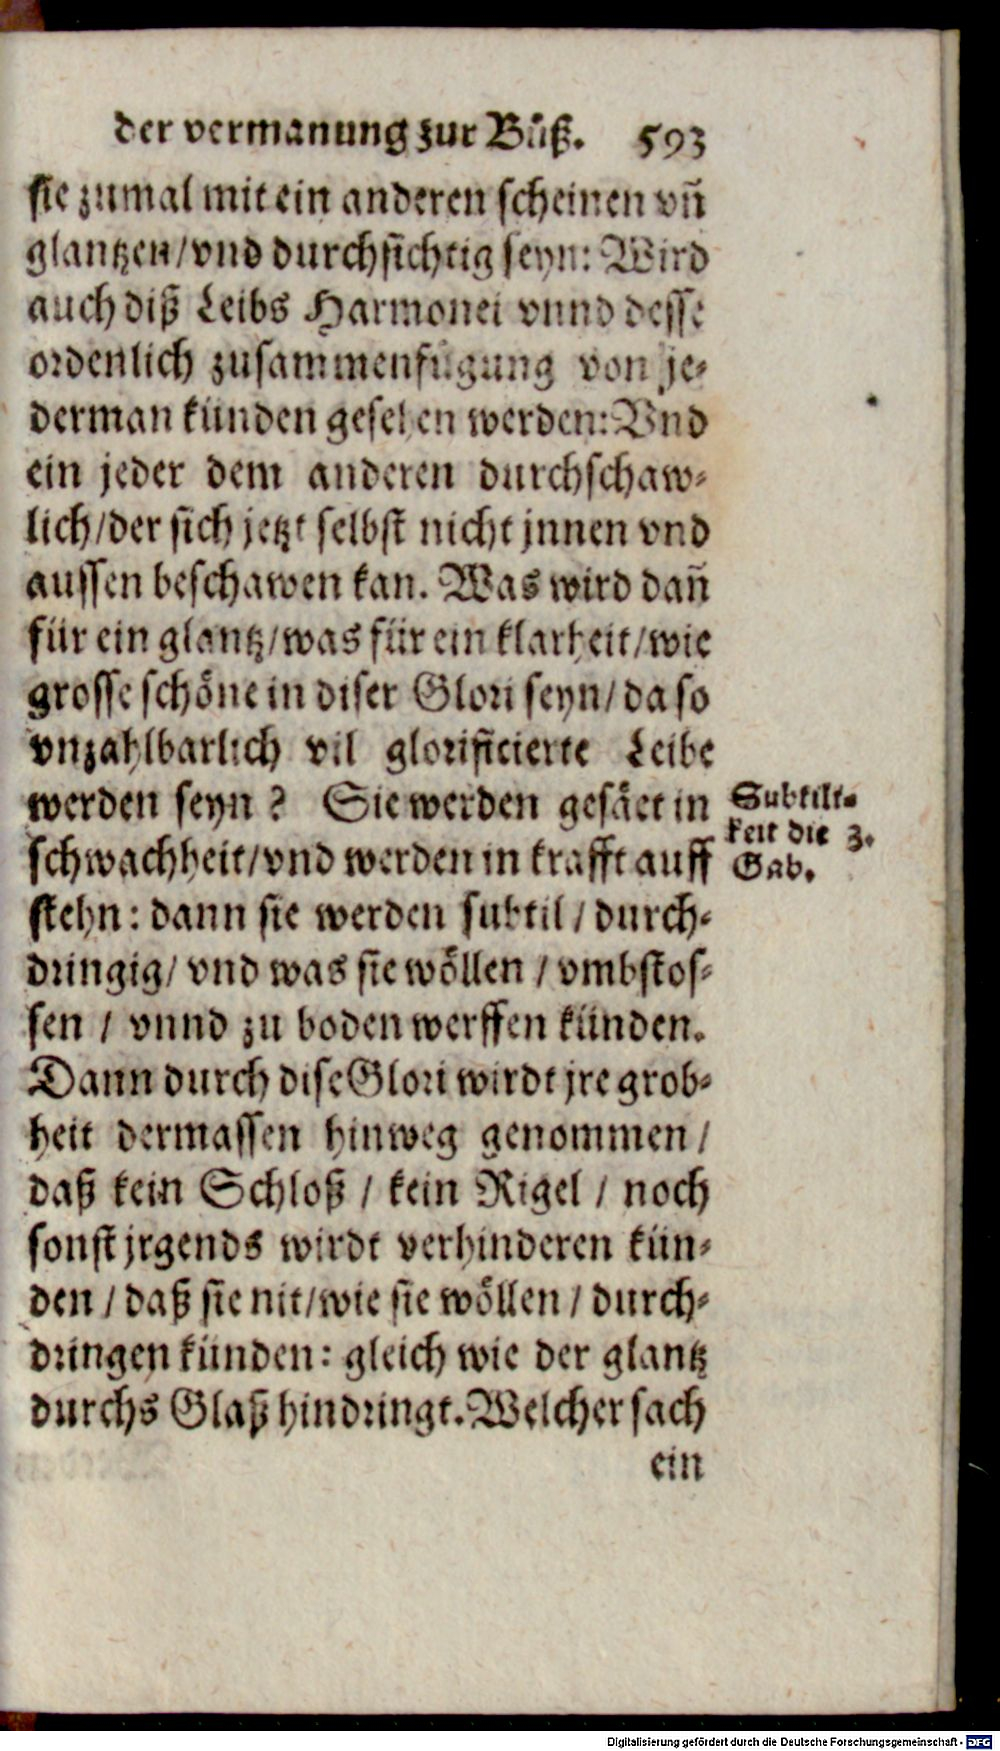 der vermanung zur Bůß. 593
sie zumal mit ein anderen scheinen vñ
glantzen/vnd durchsichtig seyn: Wird
auch diß Leibs Harmonei vnnd desse
ordenlich zusammenfügung von je-
derman künden gesehen werden: Vnd
ein jeder dem anderen durchschaw-
lich/der sich jetzt selbst nicht jnnen vnd
aussen beschawen kan. Was wird dañ
für ein glantz/was für ein klarheit/wie
grosse schöne in diser Glori seyn/da so
vnzahlbarlich vil glorificierte Leibe
werden seyn? Sie werden gesäet in
schwachheit/vnd werden in krafft auff
stehn: dann sie werden subtil/durch-
dringig/vnd was sie wöllen/vmbstos-
sen/vnnd zu boden werffen künden.
Dann durch dise Glori wirdt jre grob-
heit dermassen hinweg genommen/
daß kein Schloß/kein Rigel/noch
sonst jrgends wirdt verhinderen kün-
den/daß sie nit/wie sie wöllen/durch-
dringen künden: gleich wie der glantz
durchs Glaß hindringt. Welcher sach
ein
Subtilt-
keit die 3.
Gab.
Digitalisierung gefördert durch die Deutsche Forschungsgemeinschaft - DFG